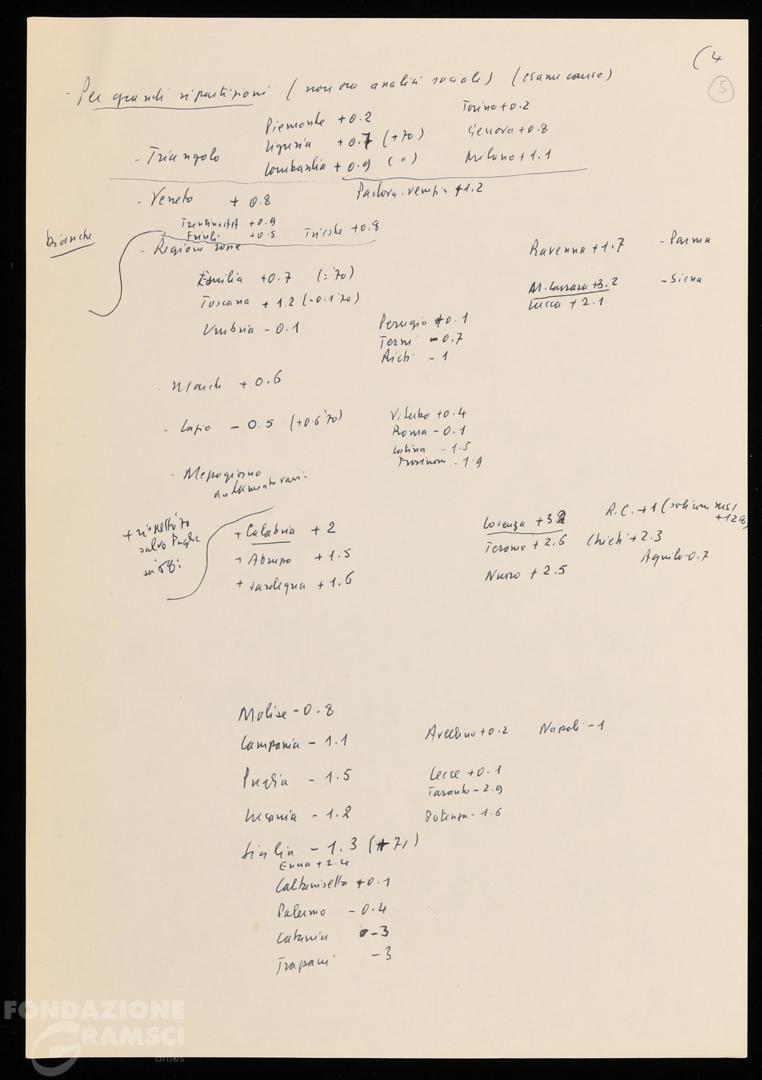 (4
5
- Per grandi ripartizioni (non ora analisi sociale) (esame cause)
Piemonte +0.2 Torino +0.2
- Triangolo Liguria +0.7 (+70) Genova +0.8
Lombardia +0.9 (") Milano +1.1
- Veneto +0.8 Padova-Venezia +1.2
Trentino AA +0.9
Friuli +0.5 Trieste +0.8
bianche
- Regioni rosse Ravenna +1.7 - Parma
Emilia +0.7 (='70) M. Carrara +3.2 - Siena
Toscana +1.2 (-0.1 '70) Lucca +2.1
Umbria -0.1 Perugia +0.1
Terni -0.7
Rieti -1
- Marche +0.6
- Lazio -0.5 (+0.6 '70) Viterbo +0.4
Roma -0.1
Latina -1.5
Frosinone -1.9
- Mezzogiorno
+ rispetto 70
salvo Puglia
+ Calabria +2 Cosenza +3.2 R.C. +1 (
+ Abruzzo +1.5 Teramo +2.6 Chieti +2.3 Aquila -0.7
+ Sardegna +1.6 Nuoro +2.5
Molise -0.8
Campania -1.1 Avellino +0.2 Napoli -1
Puglia -1.5 Lecce +0.1
Taranto -2.9
Lucania -1.2 Potenza -1.6
Sicilia -1.3 (+71)
Enna +2.4
Caltanisetta +0.1
Palermo -0.4
Catania -3
Trapani -3
FONDAZIONE
GRAMSCI
onlus